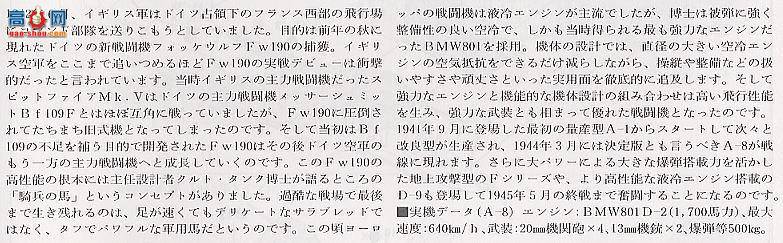 高高网
、イギリス軍はドイツ占領下のフランス西部の飛行場
部隊を送りこもうとしていました。目的は前年の秋に
現れたドイツの新戦闘機フォッケウルフFw190の捕獲。イギリ
ス空軍をここまで追いつめるほどFw190の実戦デビューは衝撃
的だったと言われています。当時イギリスの主力戦闘機だったス
ピットファイアMk.Vはドイツの主力戦闘機メッサーシュミッ
トBf109Fとほぼ互角に戦っていましたが、Fw190に圧倒さ
れてたちまち旧式機となってしまったのです。そして当初はBf
109の不足を補う目的で開発されたFw190はその後ドイツ空軍の
もう一方の主力戦闘機へと成長していくのです。このFw190の
高性能の根本には主任設計者クルト・タンク博士が語るところの
「騎兵の馬」というコンセプトがありました。過酷な戦場で最後
まで生き残れるのは、足が速くてもデリケートなサラブレッドで
はなく、タフでパワフルな軍用馬だというのです。この頃ヨーロ
ッパの戦闘機は液冷エンジンが主流でしたが、博士は被弾に強く
整備性の良い空冷で、しかも当時得られる最も強力なエンジンだ
ったBMW801を採用。機体の設計では、直径の大きい空冷エン
ジンの空気抵抗をできるだけ減らしながら、操縦や整備などの扱
いやすさや頑丈さといった実用面を徹底的に追及します。そして
強力なエンジンと機能的な機体設計の組み合わせは高い飛行性能
を生み、強力な武装とも相まって優れた戦闘機となったのです。
1941年9月に登場した最初の量産型A-1からスタートして次々と
改良型が生産され、1944年3月には決定版とも言うべきA-8が戦
線に現れます。さらに大パワーによる大きな爆弾搭載力を活かし
た地上攻撃型のFシリーズや、より高性能な液冷エンジン搭載の
D-9も登場して1945年5月の終戦まで奮闘することになるのです。
■実機データ(A-8) エンジン:BMW801D-2(1,700馬力)、最大
速度:640km/h、武装:20mm機関砲×4、13mm機銃×2、爆弾等500kg。